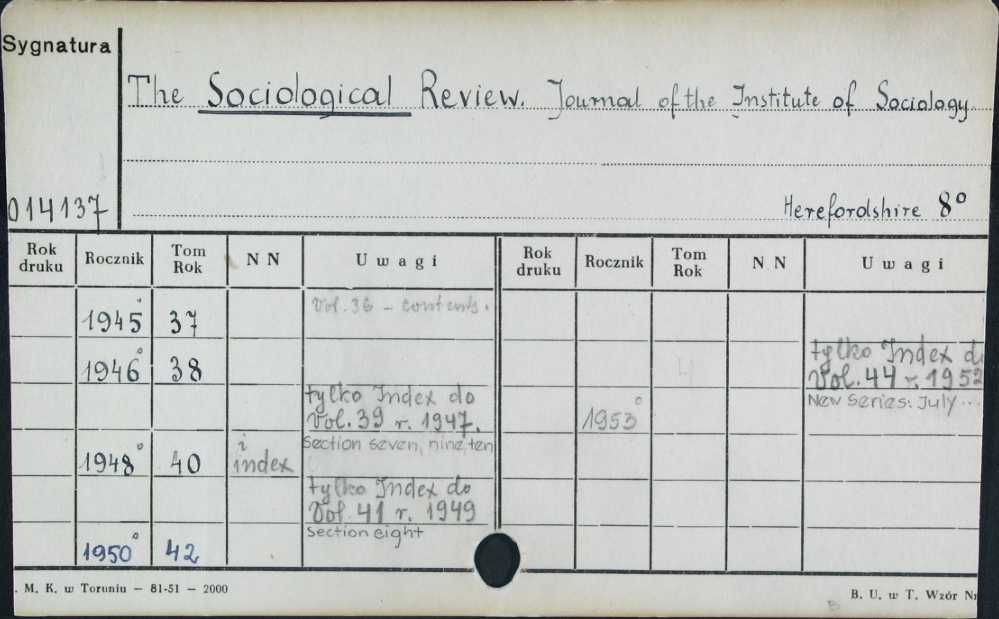 Sygnatura
The Sociological Review. Journal of the Institute of Sociology
014137
Herefordshire 8°
Rok druku Rocznik Tom Rok N N Uwagi Rok druku Rocznik Tom Rok N N Uwagi
Vol. 36 - contents.
1945° 37
1946° 38
tylko Index do
Vol. 39 r. 1947.
Section seven, nine, ten
1948° 40 i index
tylko Index do
Vol. 41 r. 1949
Section eight
1950° 42
tylko Index d
Vol. 44 r. 1952
New Series: July...
1953°
. M. K. w Toruniu — 81-51 — 2000
B. U. w T. Wzór Nr